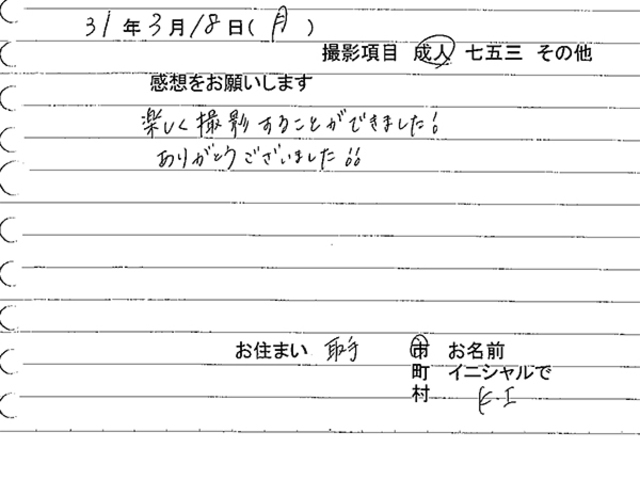 31年3月18日(月)
撮影項目 成人 七五三 その他
感想をお願いします
楽しく撮影することができました!
ありがとうございました!!
お住まい 取手 市 お名前
町 イニシャルで
村 K.I